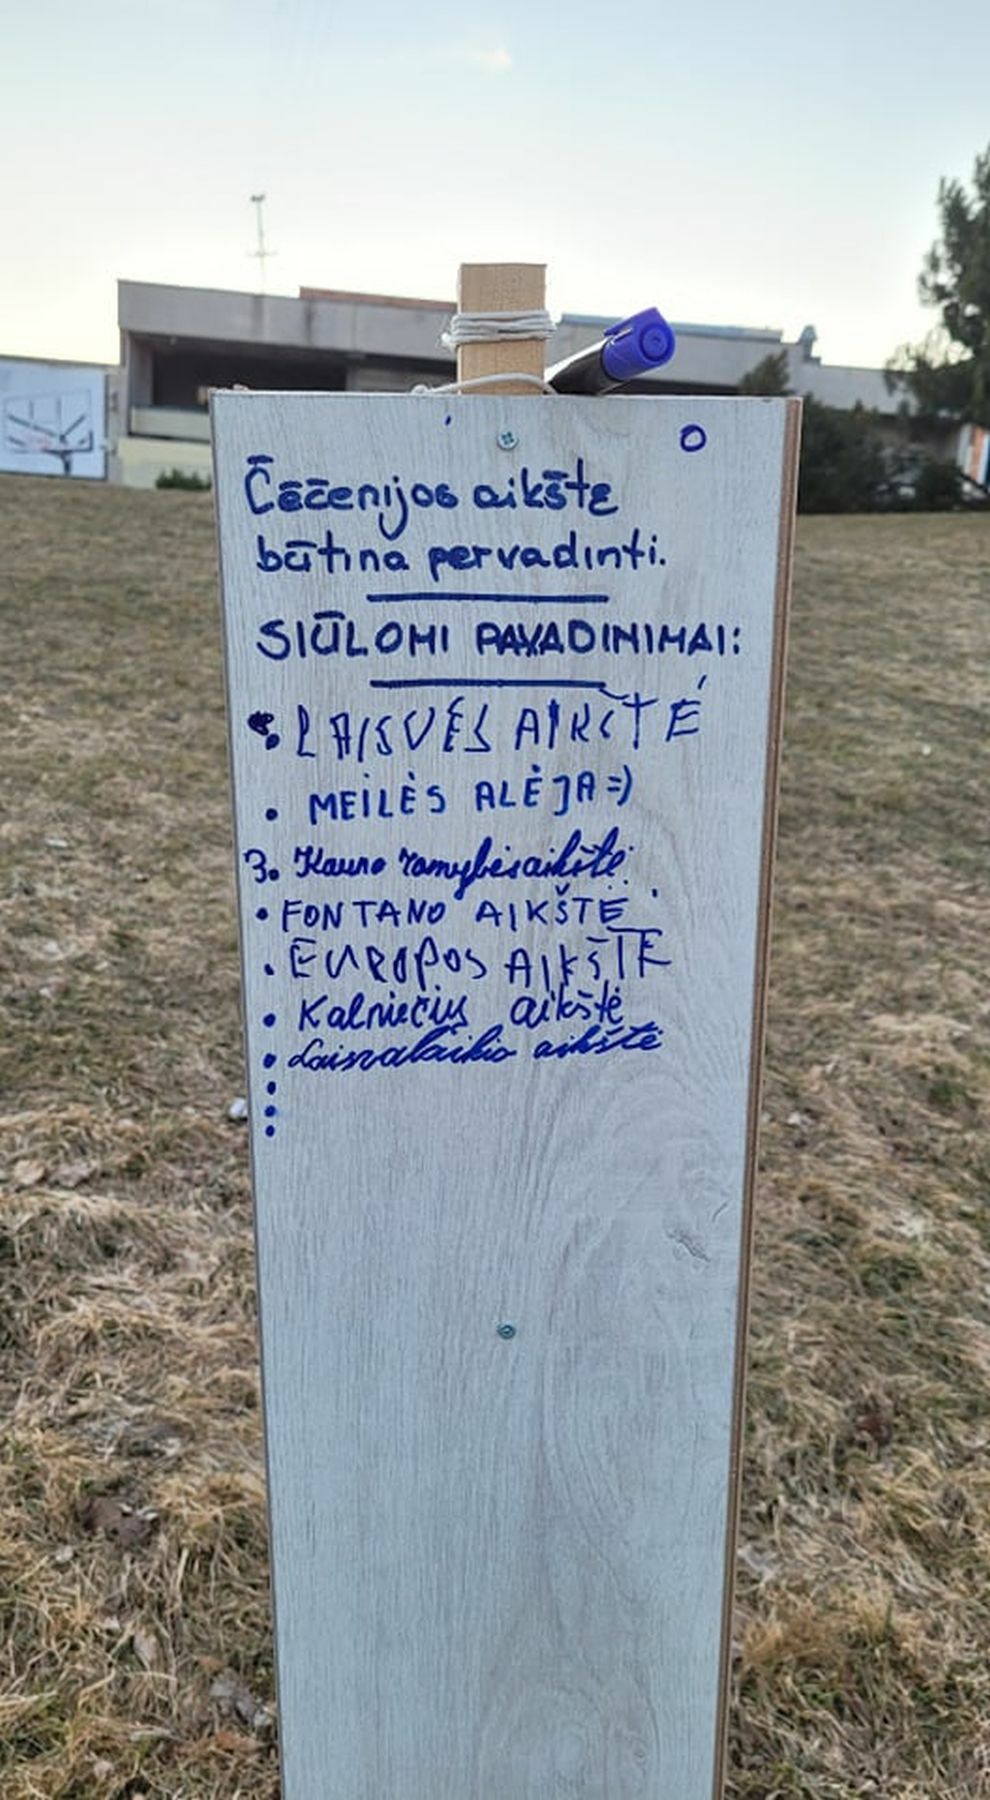 Čečenijos aikštę
būtina pervadinti.
SIŪLOMI PAVADINIMAI:
• LAISVĖS AIKŠTĖ
• MEILĖS ALĖJA =)
3. Kauno ramybės aikštė
• FONTANO AIKŠTĖ
• EUROPOS AIKŠTĖ
• Kalniečių aikštė
• Laisvalaikio aikštė
•
•
•